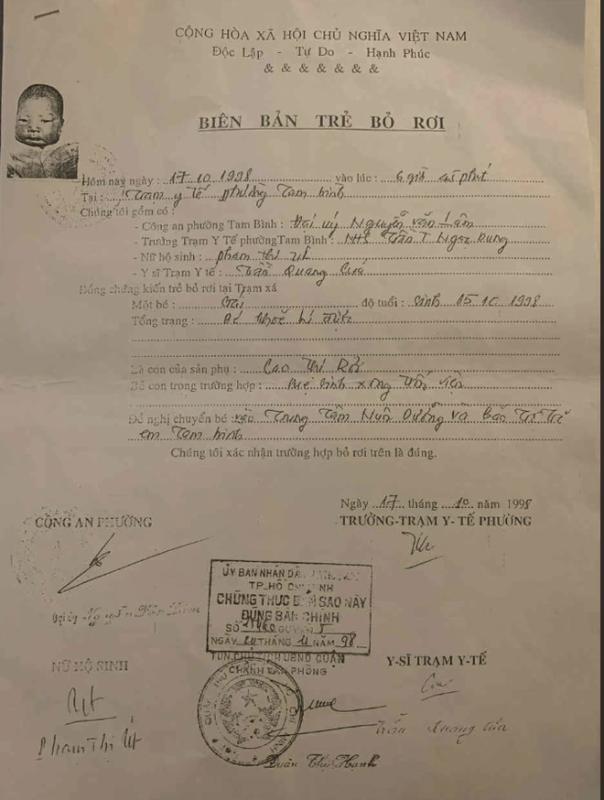 CỘNG HÒA XÃ HỘI CHỦ NGHĨA VIỆT NAM
Độc Lập - Tự Do - Hạnh Phúc
& & & & & & &
BIÊN BẢN TRẺ BỎ RƠI
Hôm nay ngày : 17.10.1998 vào lúc : 6 giờ phút
Tại : Trạm y tế phường Tam bình
Chúng tôi gồm có :
- Công an phường Tam Bình : Đại úy Nguyễn văn
- Trưởng Trạm Y Tế phường Tam Bình : NHS Trần T Ngọc Dung
- Nữ hộ sinh : phạm thị út
- Y sĩ Trạm Y tế : Trần Quang
Đồng chứng kiến trẻ bỏ rơi tại Trạm xá
Một bé : Gái độ tuổi : sinh 15.10.1998
Tổng trạng : Bé khoẻ
Là con của sản phụ : Cao thị
Bỏ con trong trường hợp : Mẹ sinh xong trốn viện
Đề nghị chuyển bé vào Trung Tâm Nuôi Dưỡng và Bảo Trợ Trẻ
em Tam bình
Chúng tôi xác nhận trường hợp bỏ rơi trên là đúng.
Ngày 17 tháng 10 năm 1998
CÔNG AN PHƯỜNG TRƯỞNG-TRẠM Y-TẾ PHƯỜNG
Đại úy Nguyễn Văn
ỦY BAN NHÂN DÂN
TP.HỒ CHÍ MINH
CHỨNG THỰC BẢN SAO NÀY
ĐÚNG BẢN CHÍNH
SỐ QUYỂN
NGÀY THÁNG 11 NĂM 98
TUN.CHỦ TỊCH UBND QUẬN
CHÁNH VĂN PHÒNG
NỮ HỘ SINH Y-SĨ TRẠM Y-TẾ
Phạm Thị Út
Trần Quang
Hạnh